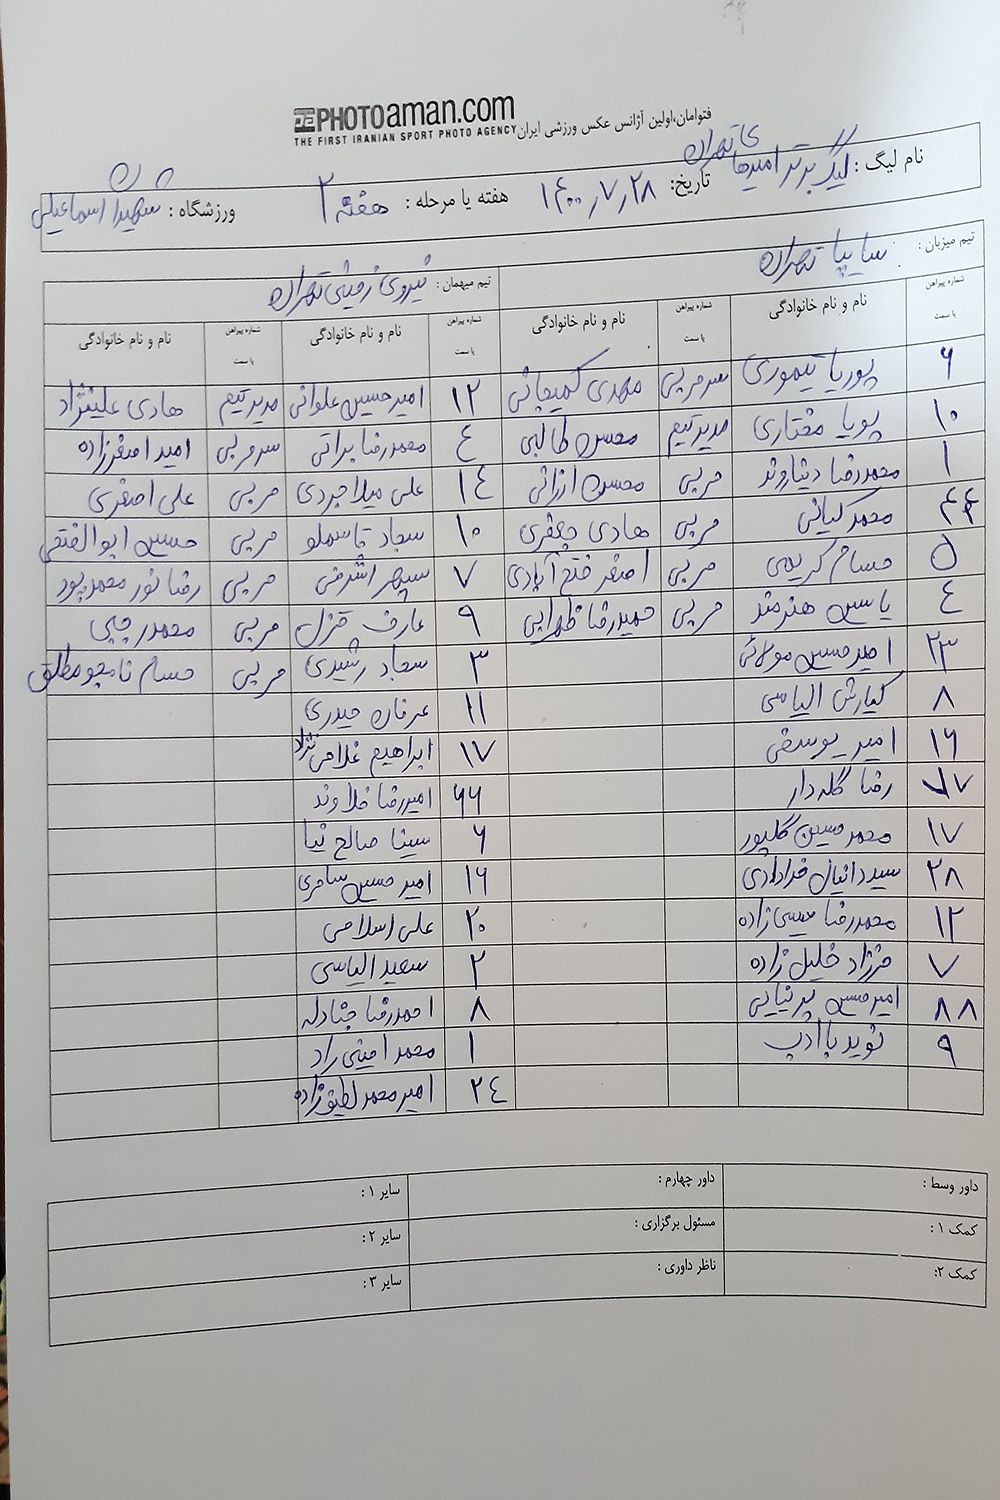 PHOTOaman.com
THE FIRST IRANIAN SPORT PHOTO AGENCY
فتوامان،اولین آژانس عکس ورزشی ایران
نام لیگ : لیگ برتر امیدهای تهران
تاریخ: ۱۴۰۰٫۷٫۲۸ هفته یا مرحله : هفته ۲ ورزشگاه : شهیدان اسماعیلی
تیم میزبان : سایپا تهران تیم میهمان : نیروی زمینی تهران
شماره پیراهن یا سمت نام و نام خانوادگی شماره پیراهن یا سمت نام و نام خانوادگی شماره پیراهن یا سمت نام و نام خانوادگی شماره پیراهن یا سمت نام و نام خانوادگی
۶ پوریا تیموری سرمربی مهدی کمیجانی ۱۲ امیرحسین علوانی مدیرتیم هادی علینژاد
۱۰ پویا مختاری مدیرتیم محسن طالبی ۴ محمدرضا براتی سرمربی امید اصغرزاده
۱ محمدرضا دیناروند مربی محسن ارزانی ۱۴ علی میلاجردی مربی علی اصغری
۴۴ محمد کیانی مربی هادی جعفری ۱۰ سجاد قاسملو مربی حسین ابوالفتحی
۵ حسام کریمی مربی اصغر فتح آبادی ۷ سپهر اشرفی مربی رضا نورمحمدپور
۴ یاسین هنرمند مربی حمیدرضا ظهرابی ۹ عارف قزل مربی محمد رجبی
۲۳ امیرحسین مولائی ۳ سجاد رشیدی مربی حسام نامجومطلق
۸ کیارش الیاسی ۱۱ عرفان حیدری
۱۶ امیر یوسفی ۱۷ ابراهیم غلامی نژاد
۷۷ رضا گله دار ۶۶ امیررضا خلاوند
۱۷ محمدحسین گلپور ۶ سینا صالح نیا
۲۸ سیددانیال خدادادی ۱۶ امیرحسین سامری
۱۲ محمدرضا عیسی زاده ۲۰ علی اسلامی
۷ فرزاد خلیل زاده ۲ سعید الیاسی
۸۸ امیرحسین پرنیایی ۸ احمدرضا جنادله
۹ نوید باادب ۱ محمد امینی راد
۲۴ امیرمحمد لطیف زاده
داور وسط : داور چهارم : سایر ۱ :
کمک ۱ : مسئول برگزاری : سایر ۲ :
کمک ۲: ناظر داوری : سایر ۳ :